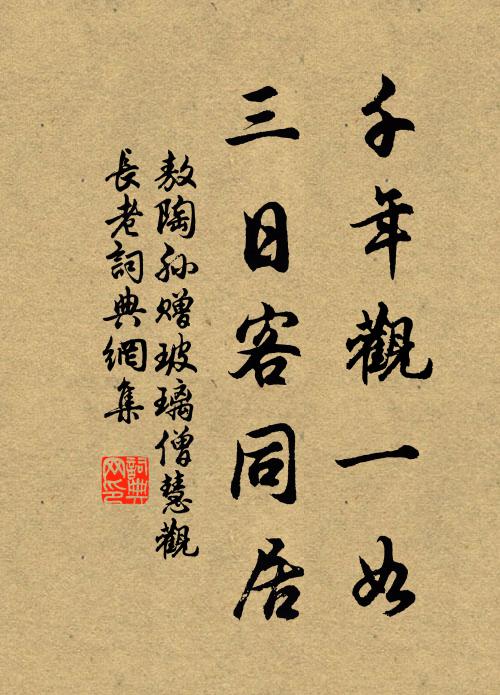 千年觀一如
三日客同居
敖陶孙贈玻璃僧慧觀
長老詞典網集
詞典网印